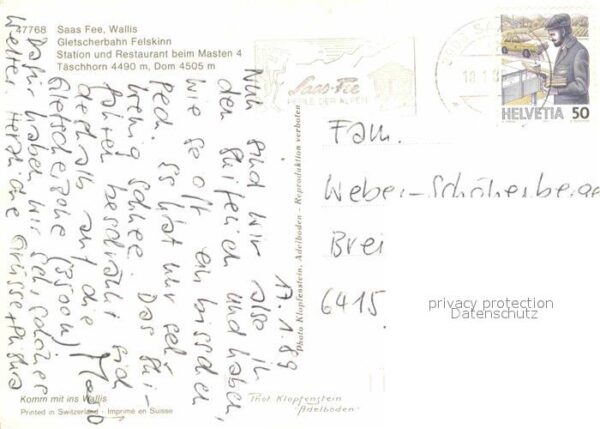 47768 Saas Fee, Wallis
Gletscherbahn Felskinn
Station und Restaurant beim Masten 4
Täschhorn 4490 m, Dom 4505 m
Saas-Fee
PERLE DER ALPEN
18.1.8
HELVETIA 50
17.1.89
Nun sind wir also in
den Skiferien und haben,
wie so oft ein bisschen
Pech. Es hat nur sehr
wenig Schnee. Das Ski-
fahren beschränkt sich
deshalb auf die
Gletscherzone (3500m)
Dafür haben wir schönes
Wetter. Herzliche Grüsse
Fam.
Weber-Schönenberge
Brei
6415
privacy protection
Datenschutz
Photo Klopfenstein, Adelboden - Reproduktion verboten
Komm mit ins Wallis
Printed in Switzerland - Imprimé en Suisse
Phot. Klopfenstein
"Adelboden"